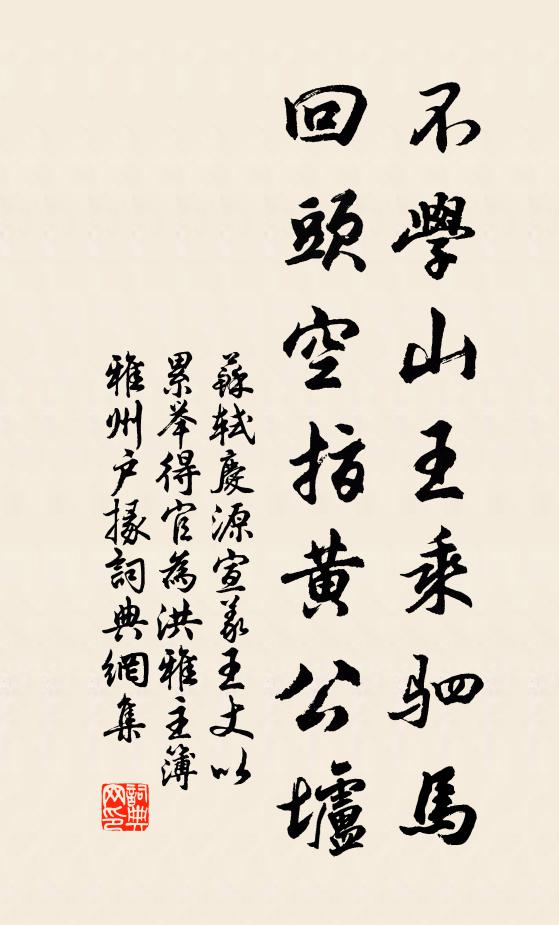 不學山王乘駟馬
回頭空指黄公壚
蘇軾慶源宣義王丈以
累举得官為洪雅主簿
雅州户掾詞典網集
詞典网印